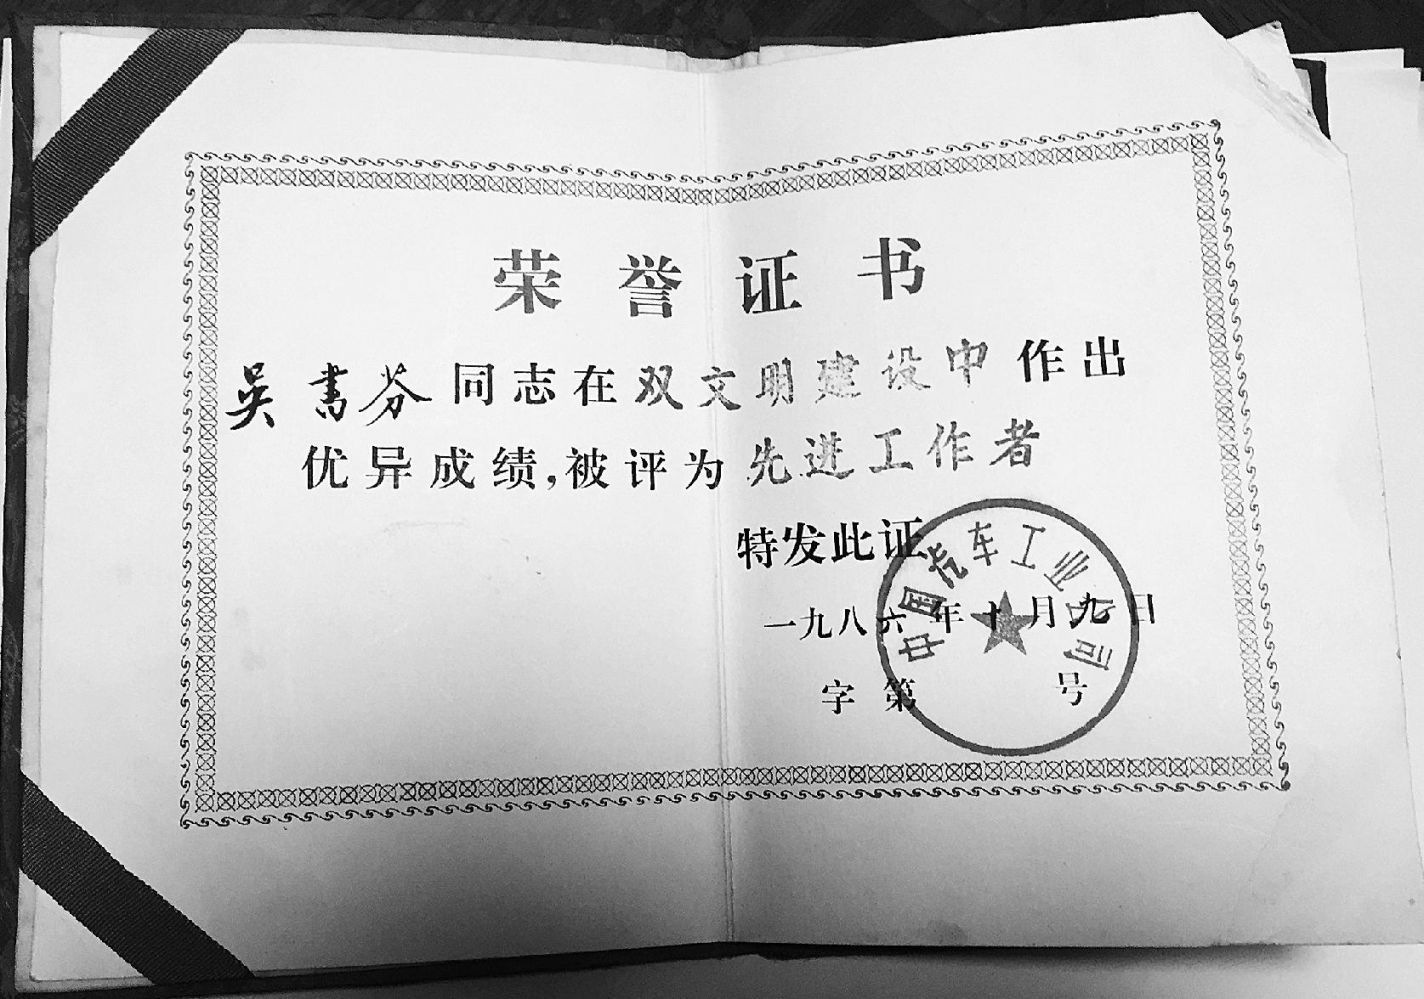 荣誉证书
吴書芬同志在双文明建设中作出
优异成绩,被评为先进工作者
特发此证
一九八六年十月九日
字第 号
中国汽车工业公司